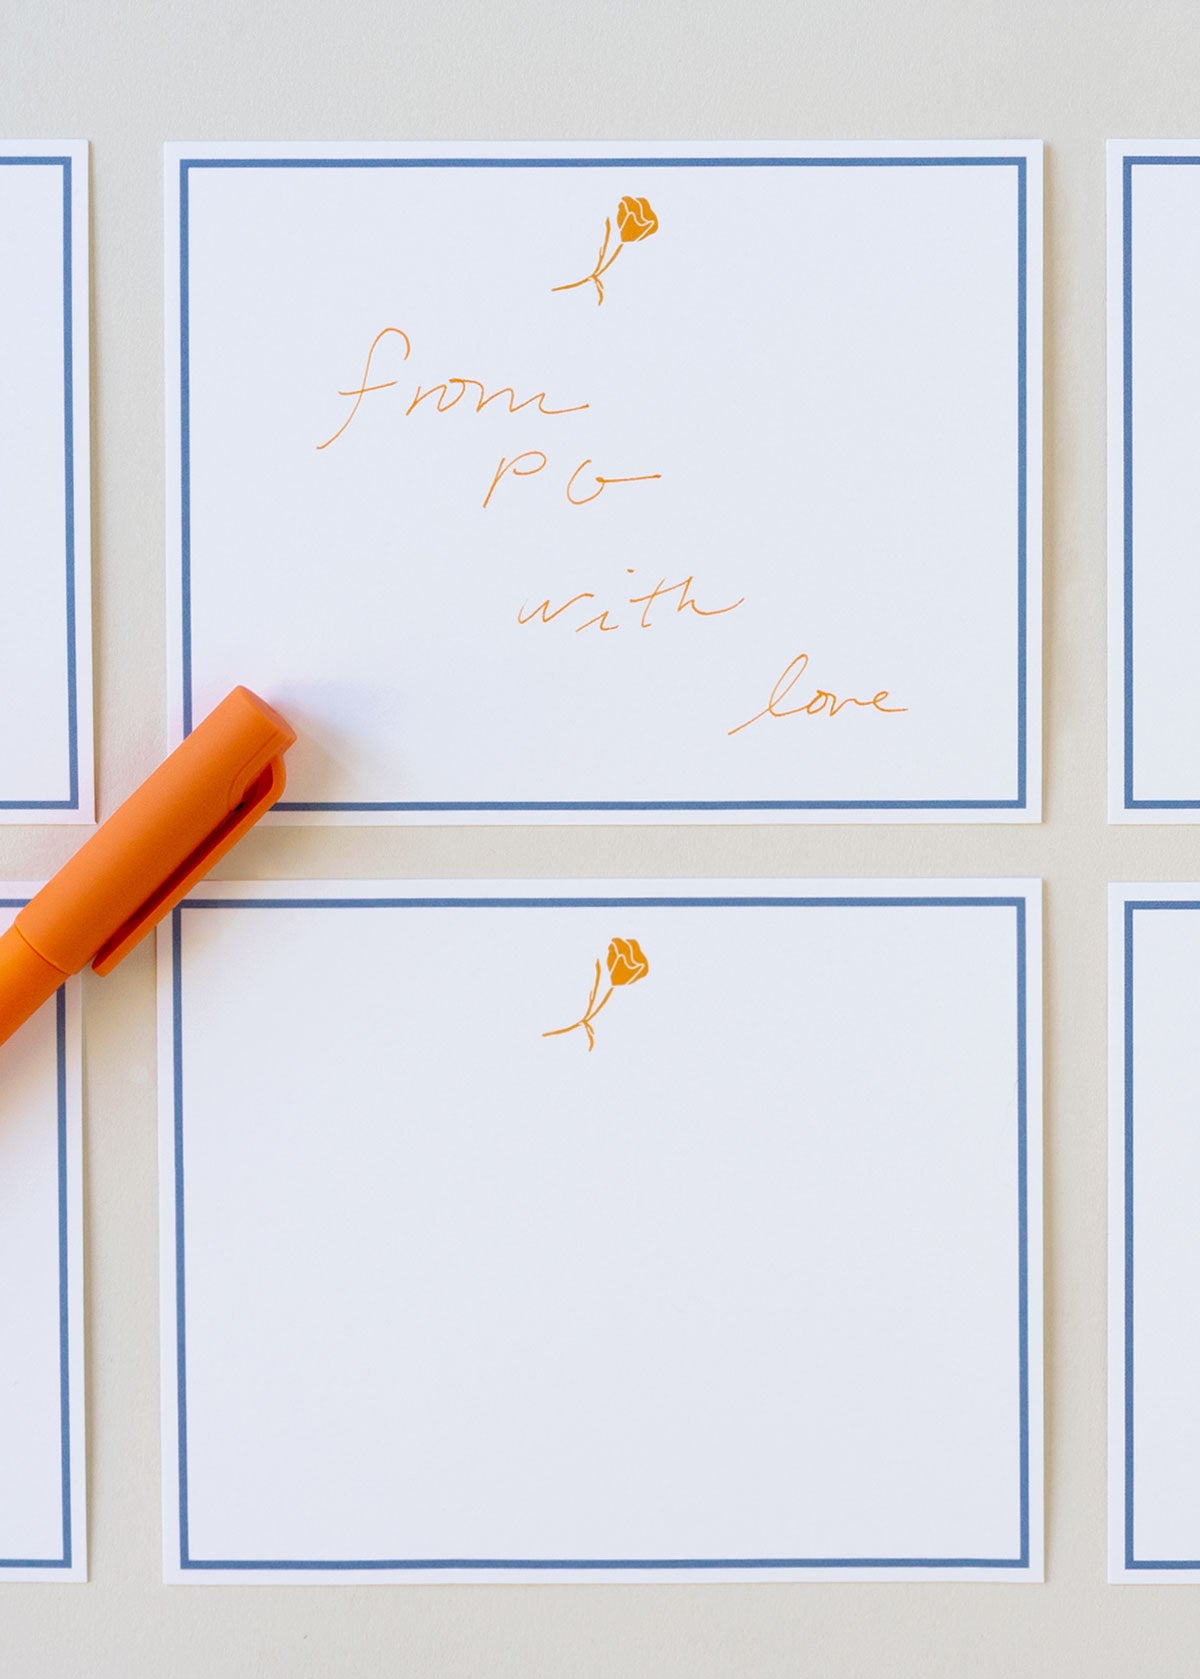 from
PG
with
love